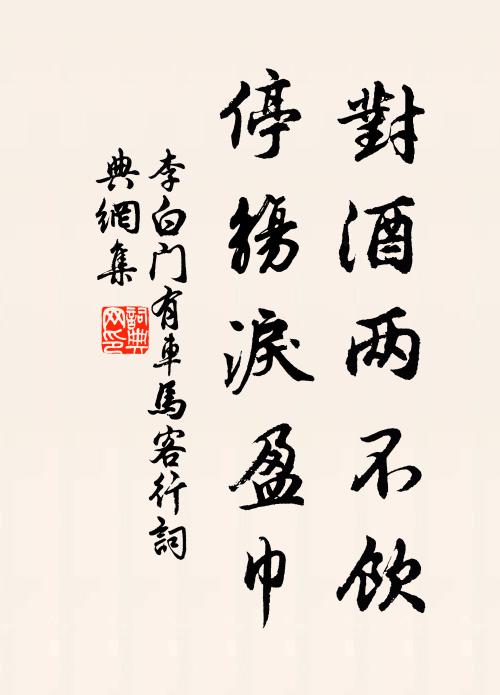 對酒两不飲
停觴淚盈巾
李白门有車馬客行詞
典網集
詞典
网印